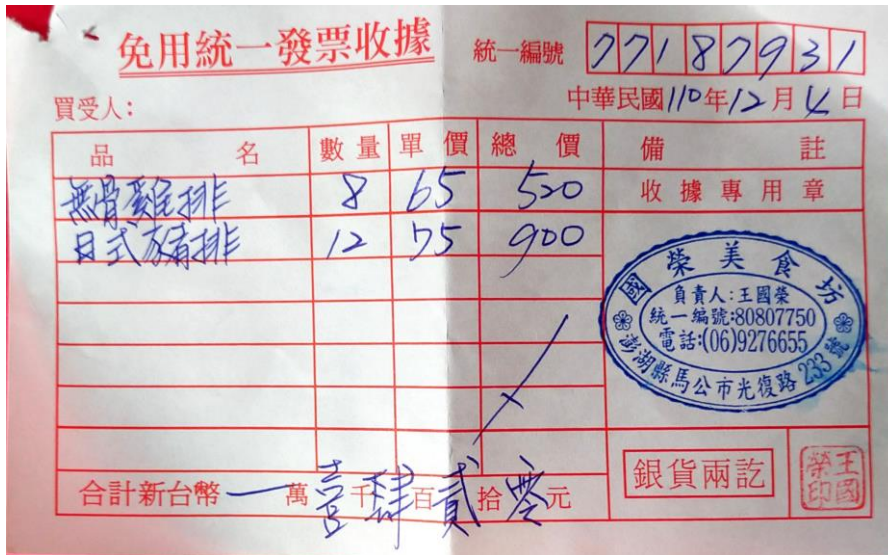 免用統一發票收據
統一編號 77187931
買受人：
中華民國110年12月4日
品名 數量 單價 總價 備註
無骨雞排 8 65 520 收據專用章
日式豬排 12 75 900
國榮美食坊
負責人:王國榮
統一編號:80807750
電話:(06)9276655
澎湖縣馬公市光復路233號
合計新台幣 萬壹千肆百貳拾零元
銀貨兩訖
王國榮印